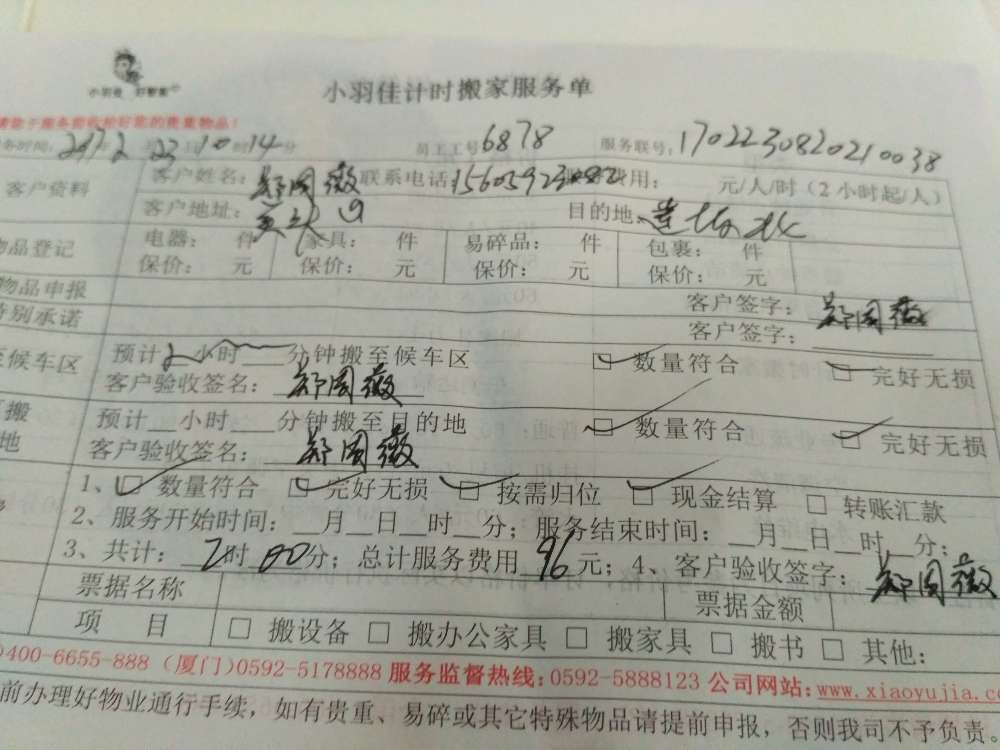 小羽佳 好管家
小羽佳计时搬家服务单
您于搬家前收检好您的贵重物品!
务时间: 2017 2 23 10时14分 员工工号 6878 服务联号: 1702230820210038
客户资料 客户姓名: 郑国薇 联系电话 15605923082 费用: 元/人/时(2小时起/人)
客户地址: 目的地:
物品登记 电器: 件 家具: 件 易碎品: 件 包裹: 件
保价: 元 保价: 元 保价: 元 保价: 元
物品申报 客户签字: 郑国薇
特别承诺 客户签字:
至候车区 预计 2 小时 分钟搬至候车区 数量符合 完好无损
客户验收签名: 郑国薇
搬 预计 小时 分钟搬至目的地 数量符合 完好无损
地 客户验收签名: 郑国薇
1、 数量符合 完好无损 按需归位 现金结算 转账汇款
2、服务开始时间: 月 日 时 分; 服务结束时间: 月 日 时 分;
3、共计: 2时00分; 总计服务费用 96 元; 4、客户验收签字: 郑国薇
票据名称 票据金额
项 目 搬设备 搬办公家具 搬家具 搬书 其他:
)400-6655-888 (厦门)0592-5178888 服务监督热线: 0592-5888123 公司网站: www.xiaoyujia.co
前办理好物业通行手续,如有贵重、易碎或其它特殊物品请提前申报,否则我司不予负责。